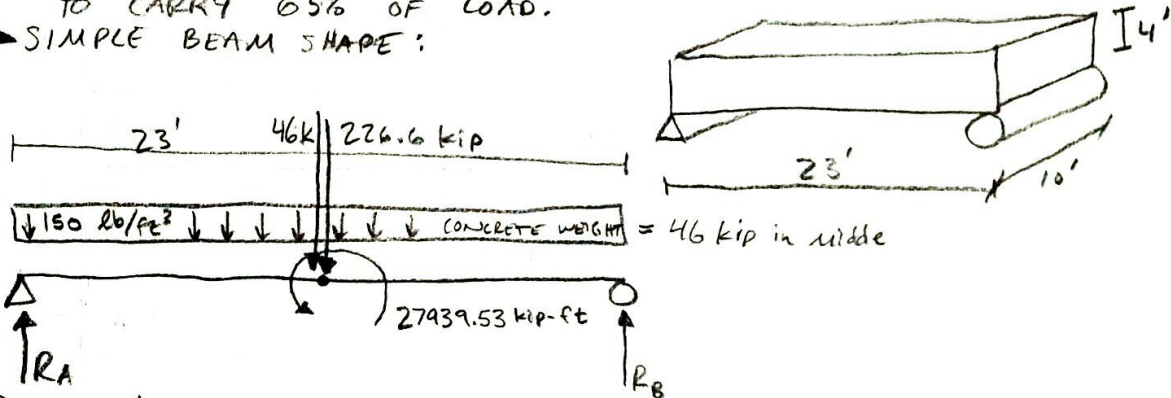 TO CARRY 65% OF LOAD.
SIMPLE BEAM SHAPE:
4'
23' 46k 226.6 kip
23' 10'
150 lb/ft³ CONCRETE WEIGHT = 46 kip in middle
27939.53 kip-ft
RA RB